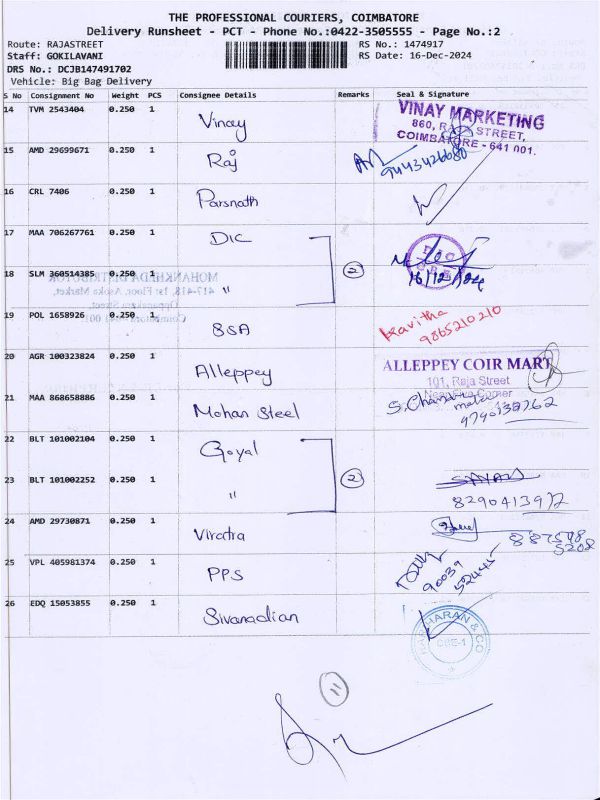 THE PROFESSIONAL COURIERS, COIMBATORE
Delivery Runsheet - PCT - Phone No.:0422-3505555 - Page No.:2
Route: RAJASTREET
RS No.: 1474917
Staff: GOKILAVANI
RS Date: 16-Dec-2024
DRS No.: DCJB147491702
Vehicle: Big Bag Delivery
S No Consignment No Weight PCS Consignee Details Remarks Seal & Signature
14 TVM 2543404 0.250 1 Vinay
VINAY MARKETING
860, RAJA STREET,
COIMBATORE - 641 001.
15 AMD 29699671 0.250 1 Raj 9443426680
16 CRL 7406 0.250 1 Parsnath
17 MAA 706267761 0.250 1 DIC
18 SLM 360514385 0.250 1 " 2
16/12/2024
MOHANKHEDA DISTRIBUTOR
417-418, 1st Floor, Asoka Market,
Oppanakara Street,
19 POL 1658926 0.250 1 BSA
Kavitha
9865210210
20 AGR 100323824 0.250 1 Alleppey
ALLEPPEY COIR MART
101, Raja Street
21 MAA 868658886 0.250 1 Mohan Steel
22 BLT 101002104 0.250 1 Goyal
23 BLT 101002252 0.250 1 " 2
24 AMD 29730871 0.250 1 Viratra
25 VPL 405981374 0.250 1 PPS
90039
52445
26 EDQ 15053855 0.250 1 Sivanadian
CBE-1
11